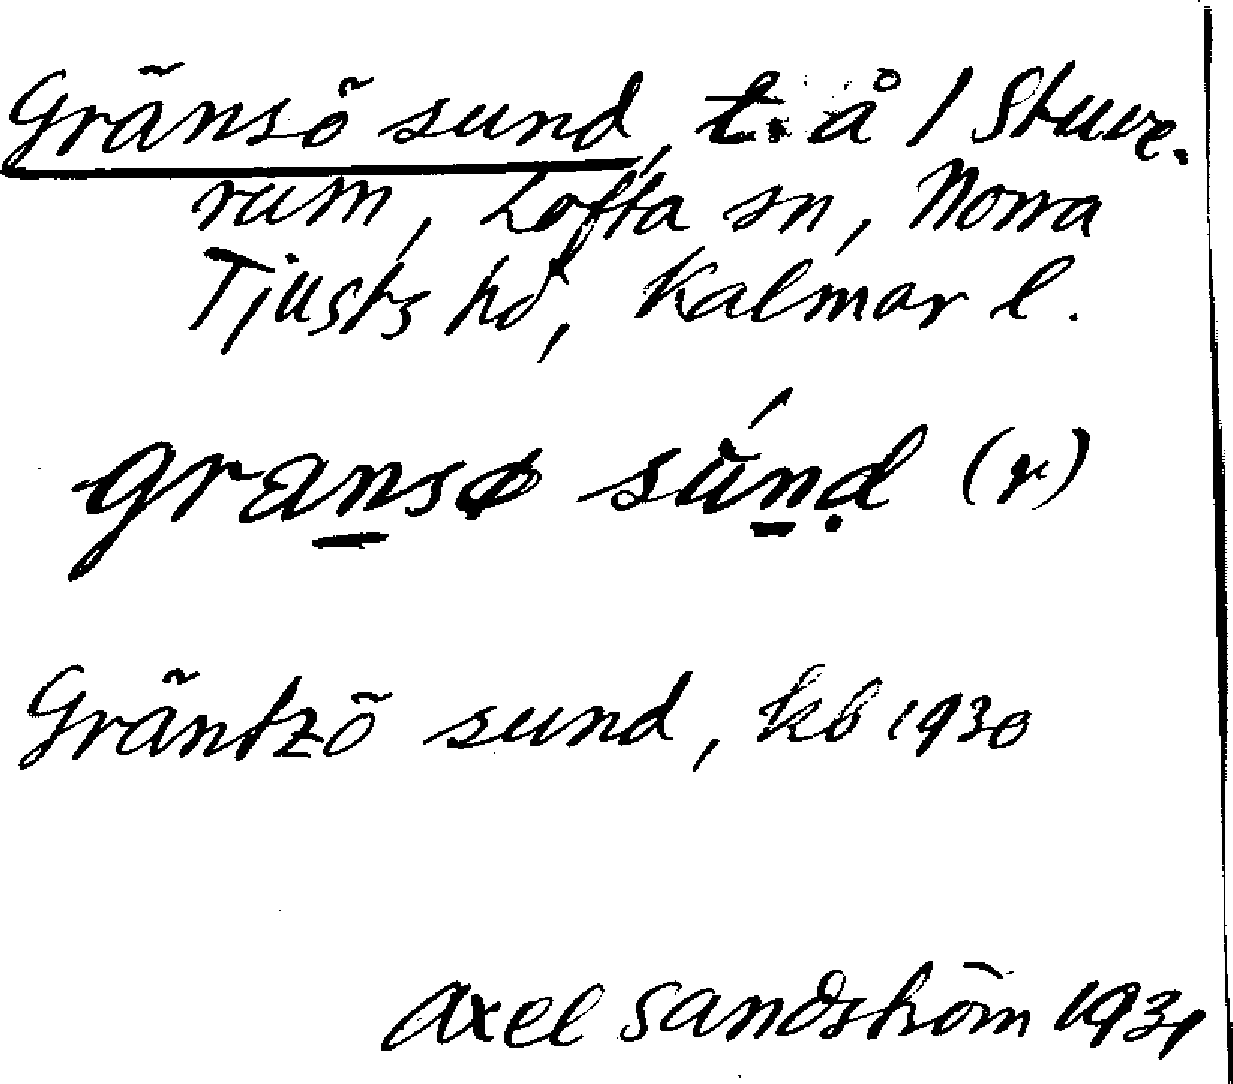 Gränsö sund, t. å / Stuve-
rum, Lofta sn, Norra
Tjusts hd, Kalmar l.
gransø súnḍ (r)
Gräntzö sund, kb 1930
Axel Sandström 1931